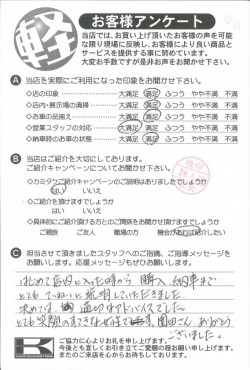 軽
お客様アンケート
当店では、お買い上げ頂いたお客様の声を可能
な限り現場に反映し、お客様により良い商品と
サービスを提供する事に努めています。
大変お手数ですが是非お声をお聞かせ下さい。
A 当店を実際にご利用になった印象をお聞かせ下さい。
◇店の印象 大満足 満足 ふつう やや不満 不満
◇店内・展示場の清掃 大満足 満足 ふつう やや不満 不満
◇お車の品揃え 大満足 満足 ふつう やや不満 不満
◇営業スタッフの対応 大満足 満足 ふつう やや不満 不満
◇納車時のお車の状態 大満足 満足 ふつう やや不満 不満
B 当店はご紹介を大切にしております。
ご紹介キャンペーンについてお聞かせ下さい。
◇カミタケご紹介キャンペーンのご説明はありましたでしょうか
はい いいえ
◇ご紹介をお願いしてもよろしいでしょうか
はい いいえ
◇具体的にご紹介頂ける方とのご関係をお聞かせ頂けますでしょうか
ご親族 ご友人 職場の方 機会があればご紹介したい
C 担当させて頂きましたスタッフへのご指摘、ご指導メッセージを
お願いします。応援メッセージもぜひお願いします。
はじめて店内に入った時から 購入、納車まで
とても ていねいに 説明していただきました。
決めては、 適切なアドバイスでした。
とても笑顔の
ありがとう
ございました。
K
ご協力に心よりお礼を申し上げます。
今後とも宜しくお引き立てご愛顧の程お願い申し上げます。
またのご来店を心からお待ちしております。